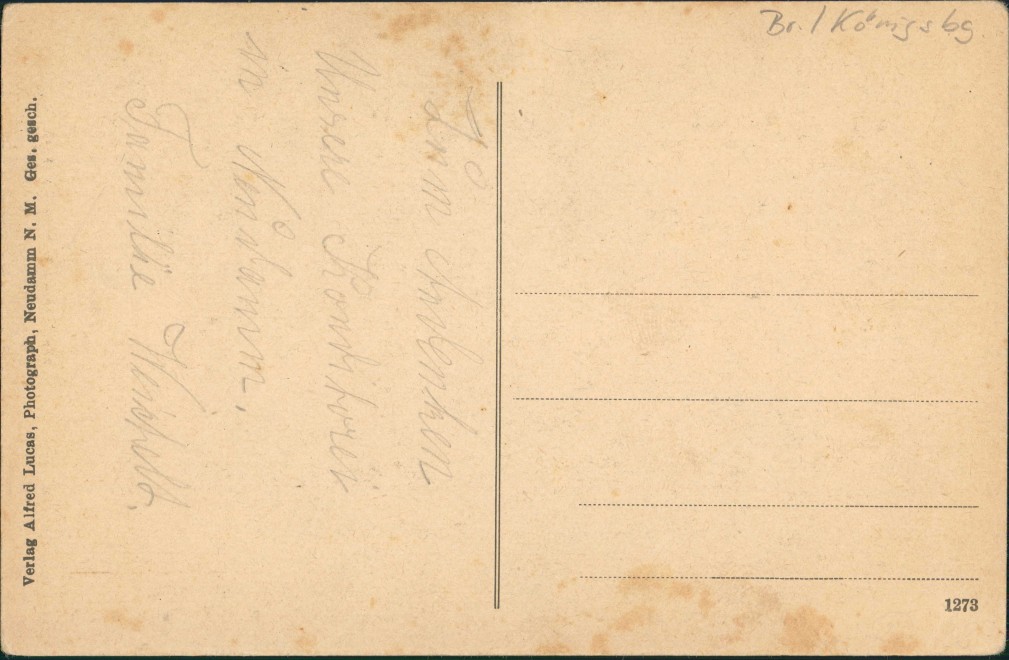 Br. / Königsbg.
Zum Andenken
Unsere Konditorei
in Neudamm.
Familie
Verlag Alfred Lucas, Photograph, Neudamm N. M. Ges. gesch.
1273